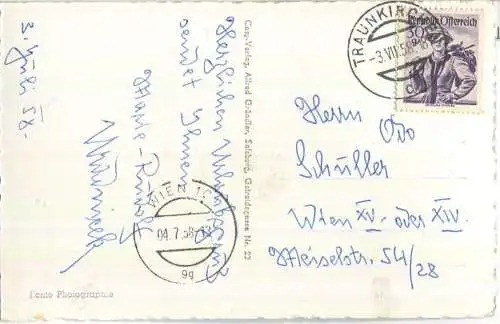 3. Juli 58.
Herzlichen Urlaubsgruß
sendet Ihnen
Cosy-Verlag, Alfred Gründler, Salzburg, Getreidegasse Nr. 22
Echte Photographie
WIEN
04.7.58
9g
TRAUNKIRCHEN
-3.VII.58
Republik Österreich
Herrn
Schüller
Wien XV. oder XIV.
Meiselstr. 54/28